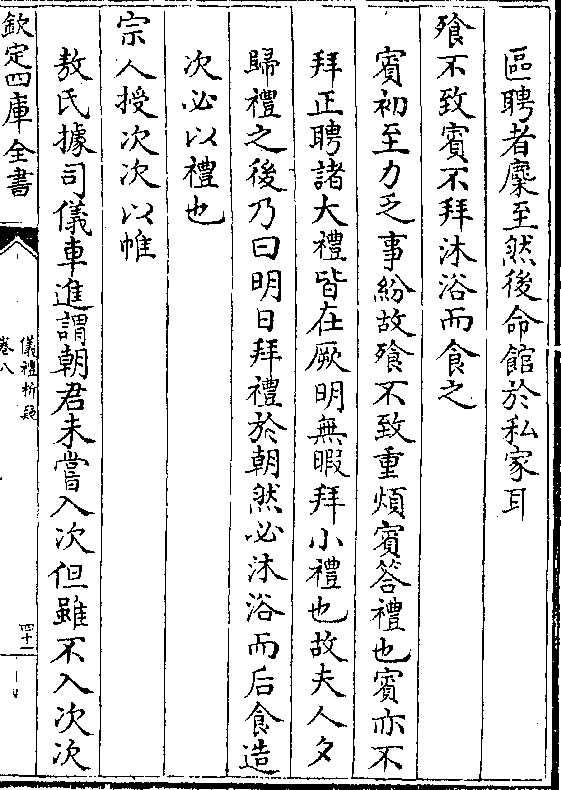 區聘者麇至然後命館於私家耳
飱不致賓不拜沐浴而食之
賓初至力乏事紛故飱不致重煩賓答禮也賓亦不
拜正聘諸大禮皆在厥明無暇拜小禮也故夫人夕
歸禮之後乃曰明日拜禮於朝然必沐浴而后食造
次必以禮也
宗人授次次以帷
敖氏據司儀車進謂朝君未嘗入次但雖不入次次
欽定四庫全書
儀禮析疑
卷八
四十一